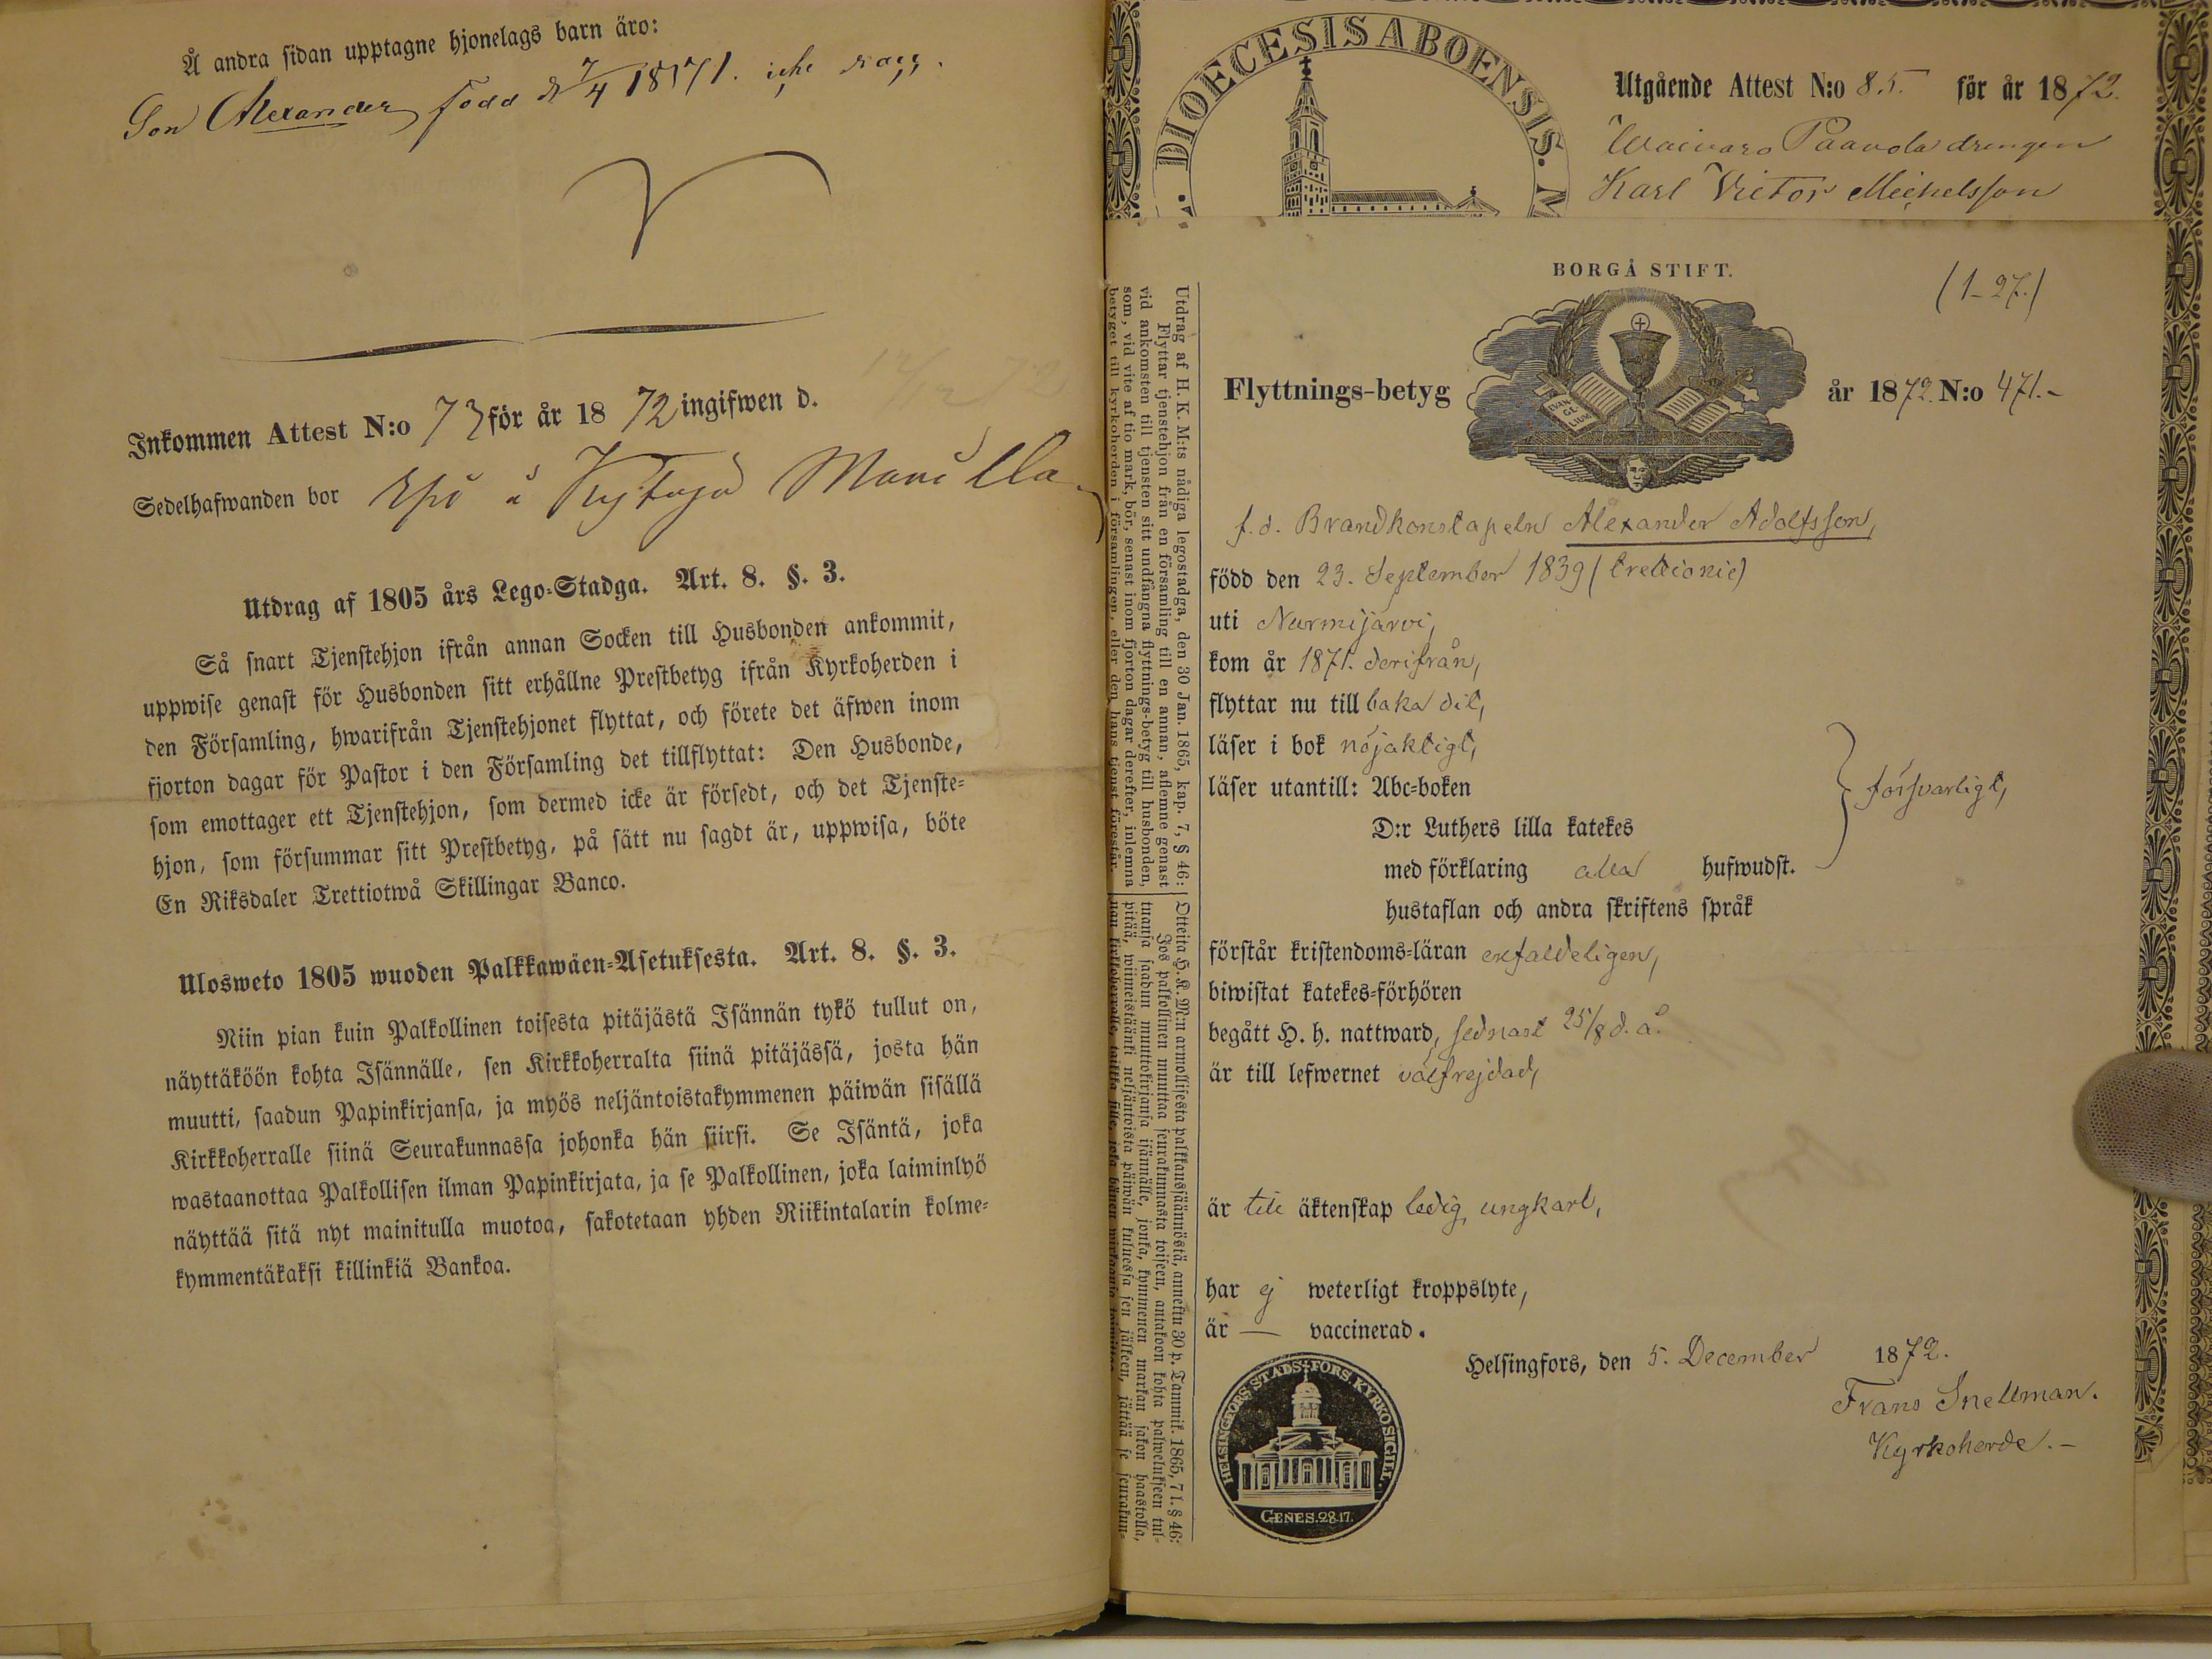 Å andra sidan upptagne hjonelags barn äro:
Son Alexander född d 7/4 1871. icke vacc.
Inkommen Attest N:o 73 för år 18 72 ingifwen d. 12/12 72
Sedelhafwanden bor
Utdrag af 1805 års Lego-Stadga. Art. 8. §. 3.
Så snart Tjenstehjon ifrån annan Socken till Husbonden ankommit,
uppwise genast för Husbonden sitt erhållne Prestbetyg ifrån Kyrkoherden i
den Församling, hwarifrån Tjenstehjonet flyttat, och förete det äfwen inom
fjorton dagar för Pastor i den Församling det tillflyttat: Den Husbonde,
som emottager ett Tjenstehjon, som dermed icke är försedt, och det Tjenste-
hjon, som försummar sitt Prestbetyg, på sätt nu sagdt är, uppwisa, böte
En Riksdaler Trettiotwå Skillingar Banco.
Ulosweto 1805 wuoden Palkkawäen-Asetuksesta. Art. 8. §. 3.
Niin pian kuin Palkollinen toisesta pitäjästä Isännän tykö tullut on,
näyttäköön kohta Isännälle, sen Kirkkoherralta siinä pitäjässä, josta hän
muutti, saadun Papinkirjansa, ja myös neljäntoistakymmenen päiwän sisällä
Kirkkoherralle siinä Seurakunnassa johonka hän siirsi. Se Isäntä, joka
wastaanottaa Palkollisen ilman Papinkirjata, ja se Palkollinen, joka laiminlyö
näyttää sitä nyt mainitulla muotoa, sakotetaan yhden Riikintalarin kolme-
kymmentäkaksi killinkiä Bankoa.
DIOECESIS ABOENSIS. M
Utgående Attest N:o 85. för år 1872.
Waivaro Paavola drengen
Karl Victor Michelsson
BORGÅ STIFT.
(1-27.)
Flyttnings-betyg
EVAN-
GE-
LIUM
år 1872. N:o 471.-
f.d. Brandkonstapeln Alexander Adolfsson,
född den 23. September 1839 (trettionie)
uti Nurmijärvi,
kom år 1871. derifrån,
flyttar nu till baka dit,
läser i bok nöjaktigt,
läser utantill: Abc-boken
D:r Luthers lilla katekes
med förklaring alla hufwudst.
hustaflan och andra skriftens språk
försvarligt,
förstår kristendoms-läran enfaldeligen,
biwistat katekes-förhören
begått H. h. nattward, sednast 25/8 d. å.
är till lefwernet välfrejdad,
är till äktenskap ledig, ungkarl,
har ej weterligt kroppslyte,
är — vaccinerad.
Helsingfors, den 5. December 1872.
Frans Snellman.
Kyrkoherde.-
HELSINGFORS STADS-FÖRS. KYRKOSIGILL.
GENES.28.17.
Utdrag af H. K. M:ts nådiga legostadga, den 30 Jan. 1865, kap. 7, § 46:
Flyttar tjenstehjon från en församling till en annan, aflemne genast
vid ankomsten till tjensten sitt undfångna flyttnings-betyg till husbonden,
som, vid vite af tio mark, bör, senast inom fjorton dagar derefter, inlemna
betyget till kyrkoherden i församlingen, eller den hans tjenst förestår.
Otteita H. K. M:n armollisesta palkkaussäännöstä, annettu 30 p. Tammik. 1865, 7 l. § 46:
Jos palkollinen muuttaa seurakunnasta toiseen, antakoon kohta palwelukseen tul-
tuanja saadun muuttokirjansa isännälle, jonka, kymmenen markan sakon haastolla,
pitää, wiimeistäänki neljäntoista päiwän kuluessa sen jälkeen, jättää se seurakun-